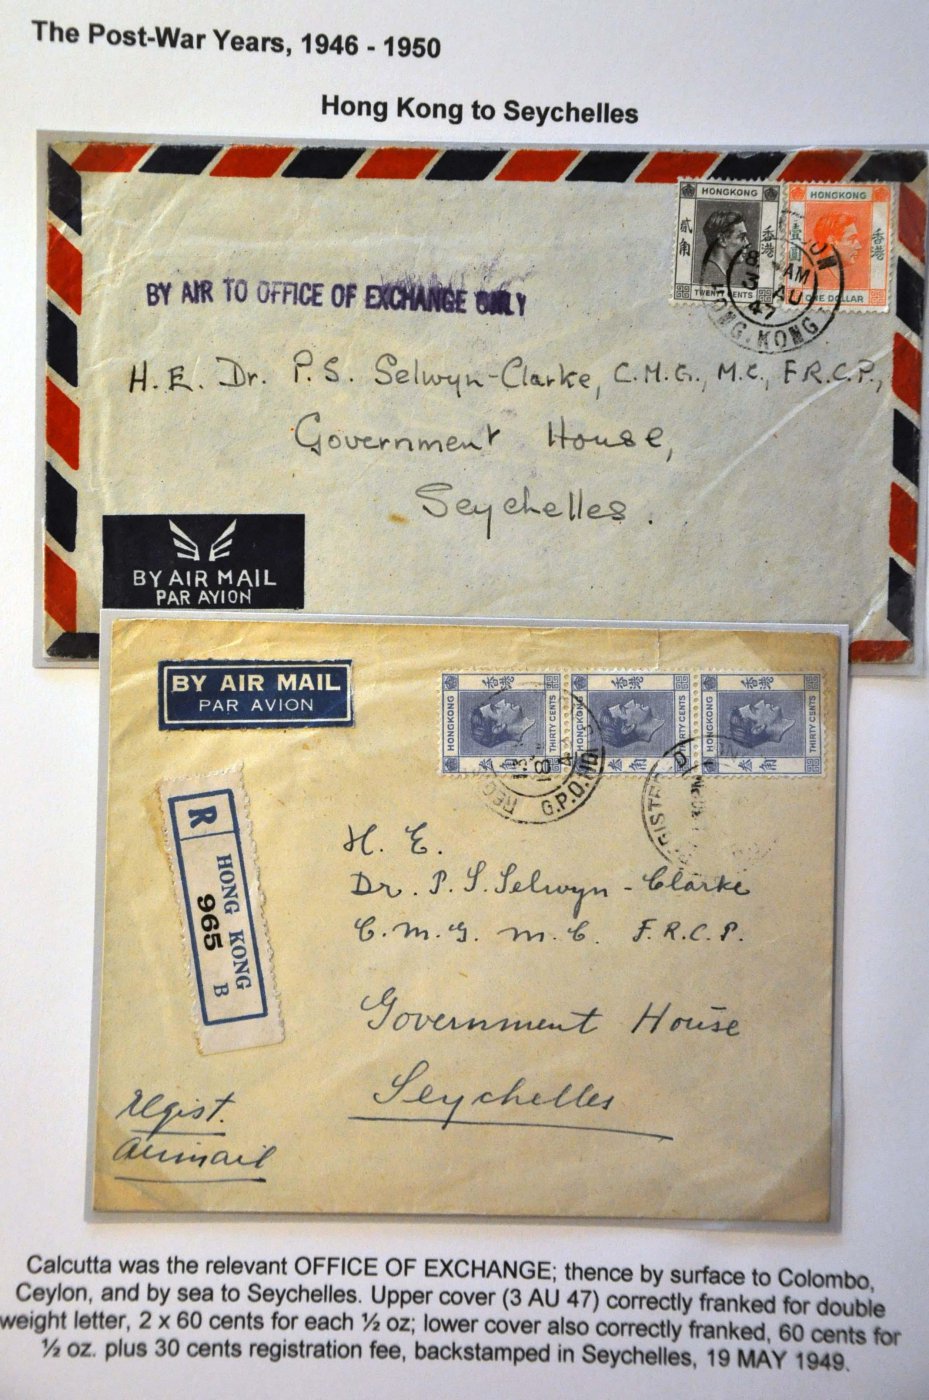 The Post-War Years, 1946 - 1950
Hong Kong to Seychelles
HONGKONG
貳角
香港
TWENTY CENTS
HONGKONG
壹圓
香港
ONE DOLLAR
8 AM
3 AU
47
HONG. KONG
BY AIR TO OFFICE OF EXCHANGE ONLY
H. E. Dr. P. S. Selwyn-Clarke, C.M.G., M.C., F.R.C.P.,
Government House,
Seychelles.
BY AIR MAIL
PAR AVION
BY AIR MAIL
PAR AVION
HONGKONG
香港
叁角
THIRTY CENTS
HONGKONG
香港
叁角
THIRTY CENTS
HONGKONG
香港
叁角
THIRTY CENTS
G.P.O.
R
HONG KONG
965
B
H. E.
Dr. P. S. Selwyn-Clarke
C. M. G. M. C. F. R. C. P.
Government House
Seychelles
Regist.
Airmail
Calcutta was the relevant OFFICE OF EXCHANGE; thence by surface to Colombo,
Ceylon, and by sea to Seychelles. Upper cover (3 AU 47) correctly franked for double
weight letter, 2 x 60 cents for each ½ oz; lower cover also correctly franked, 60 cents for
½ oz. plus 30 cents registration fee, backstamped in Seychelles, 19 MAY 1949.